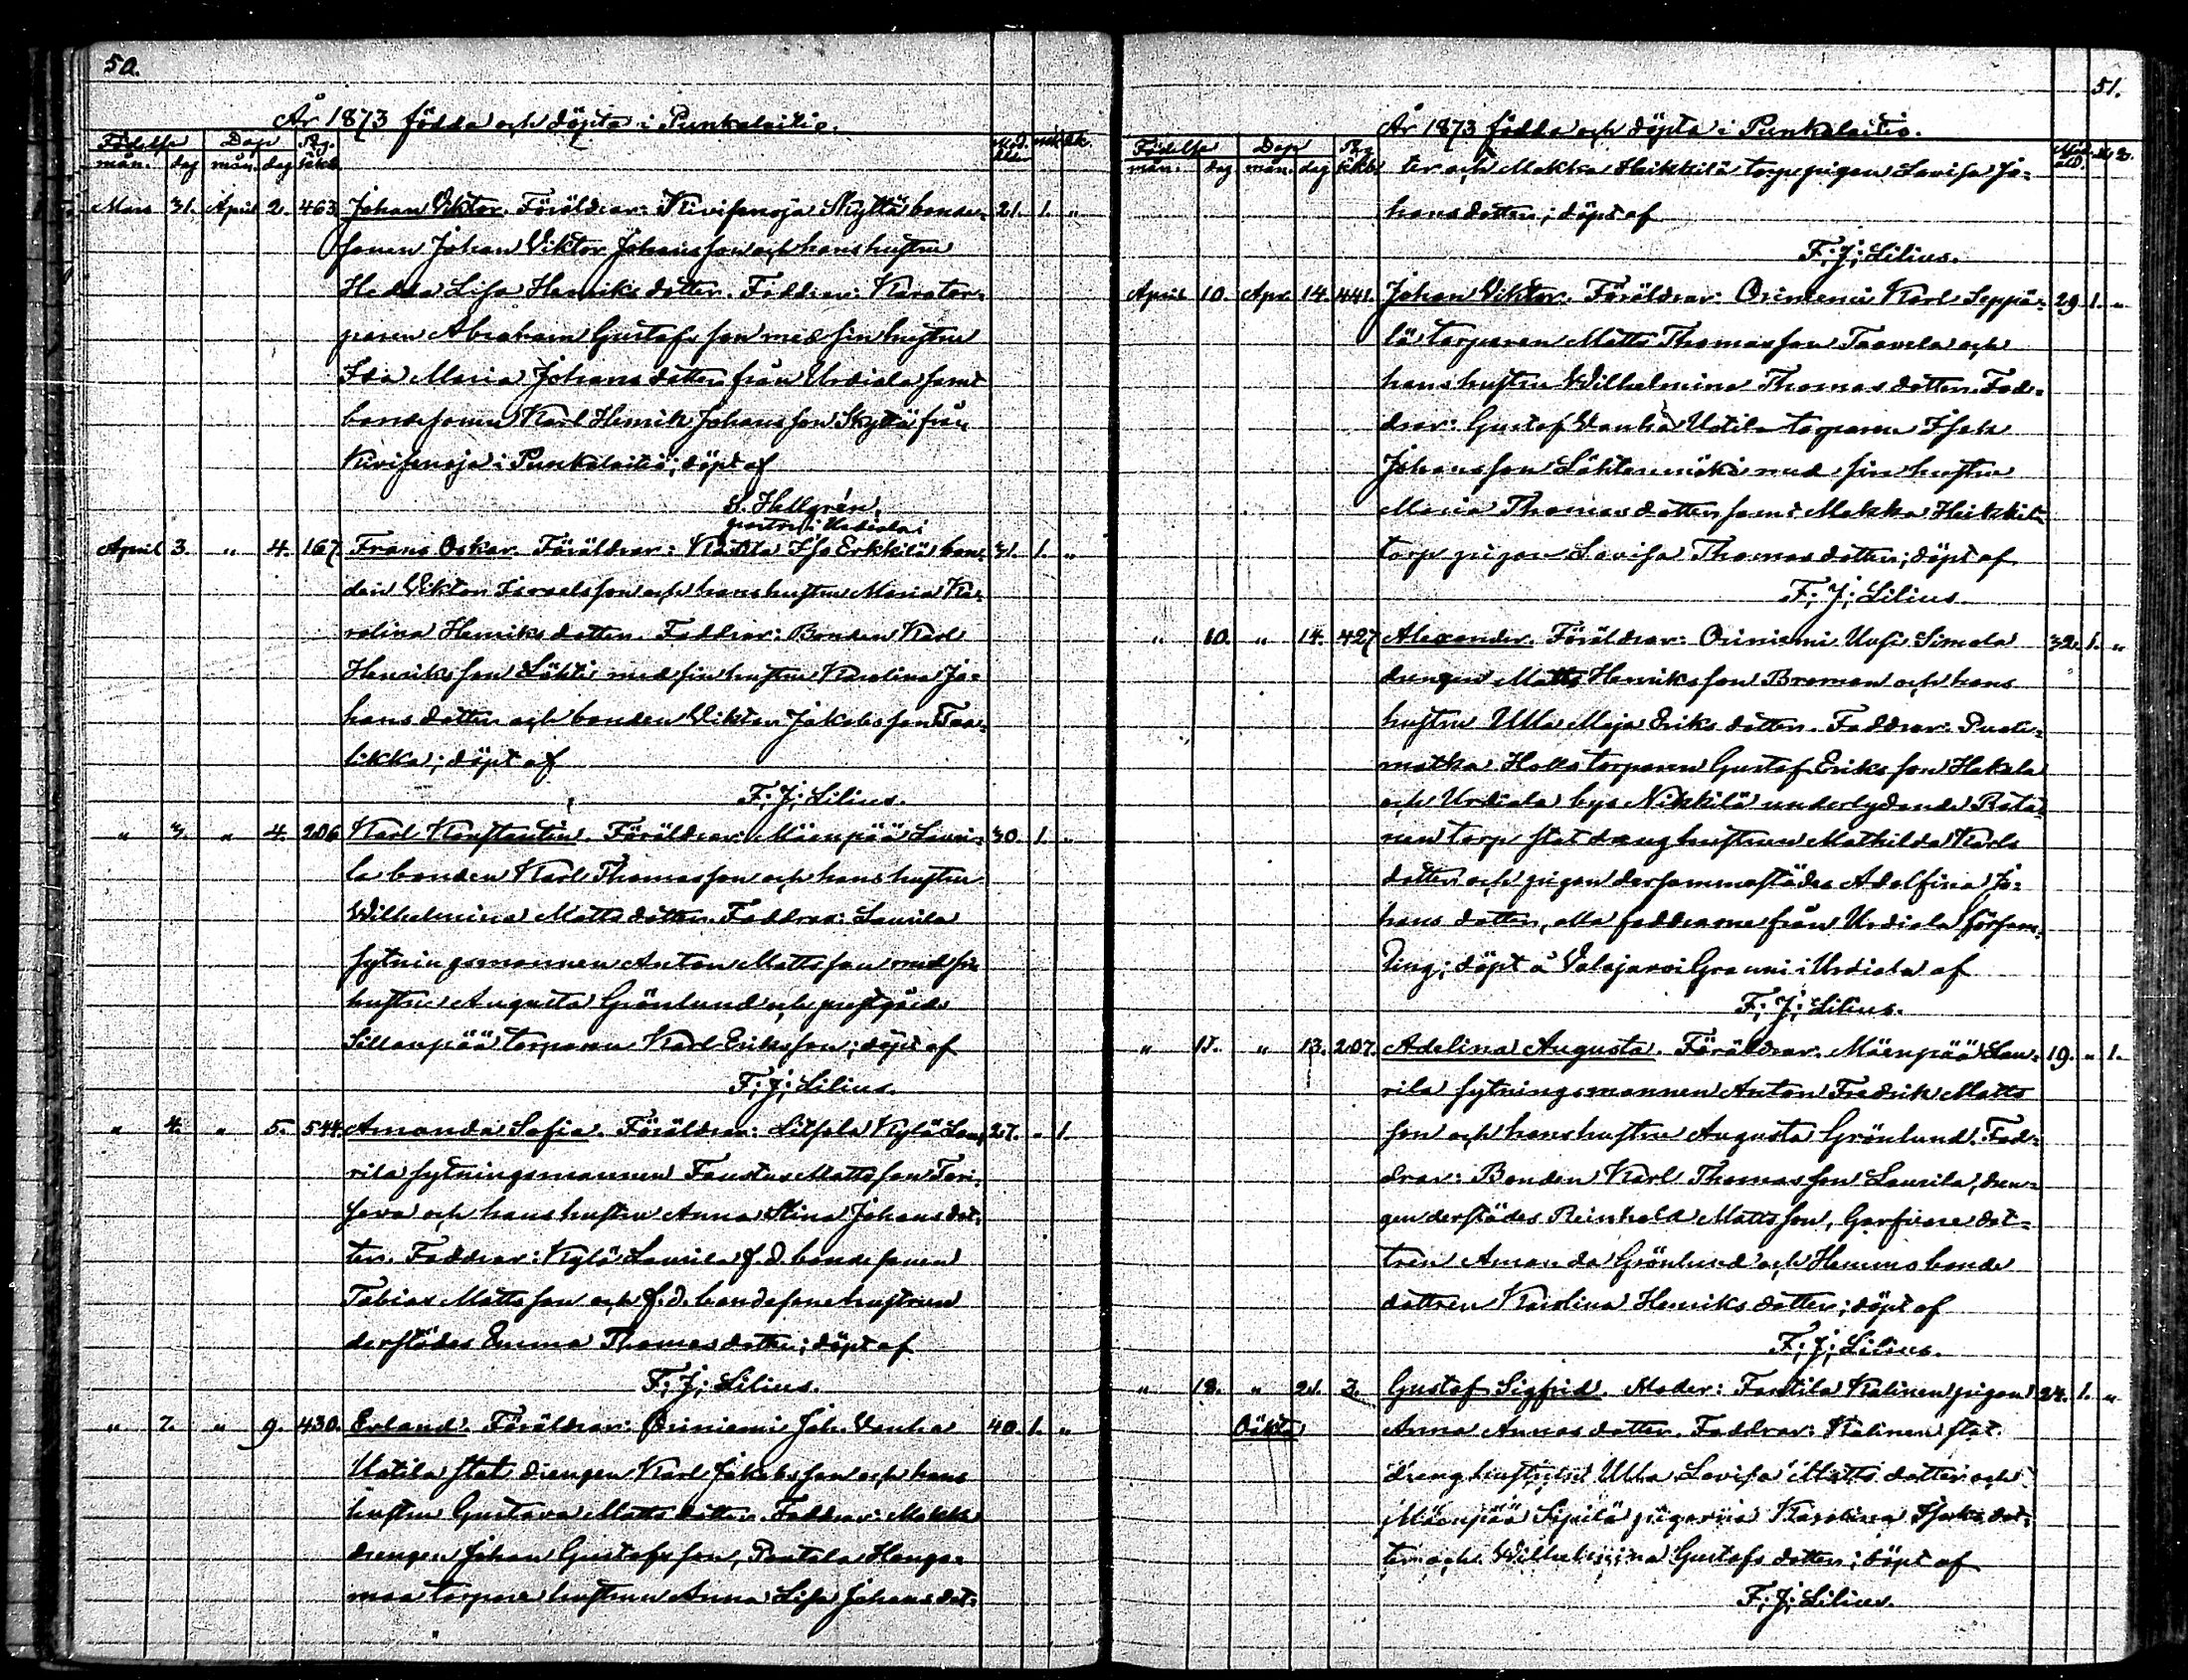 50.
År 1873 födda och döpta i Punkalaitio.
Födelse Dop Pg. Mod. mk. qk.
mån. dag mån. dag i kkb. ålder
Mars 31. April 2. 463 Johan Viktor. Föräldrar: Kivisenoja Skyttä bonde- 21. 1. "
sonen Johan Viktor Johansson och hans hustru
Hedda Lisa Henriksdotter. Faddrar: Torstor-
paren Abraham Gustafsson med sin hustru
Ida Maria Johansdotter från Urdiala samt
bondesonen Karl Henrik Johansson Skyttä från
Kivisenoja i Punkalaitio; döpt af
S. Hellgrén,
pastor i Urdiala.
April 3. " 4. 167 Frans Oskar. Föräldrar: Iso Erkkilä bon- 31. 1. "
den Viktor Israelsson och hans hustru Maria Ka-
rolina Henriksdotter. Faddrar: Bonden Karl
Henriksson Lähti med sin hustru Karolina Jo-
hansdotter och bonden Viktor Jakobsson Taa-
likka; döpt af
F; J; Lilius.
" 3. " 4. 206 Karl Konstantin. Föräldrar: Mäenpää Lauri- 30. 1. "
la bonden Karl Thomasson och hans hustru
Wilhelmina Mattsdotter. Faddrar: Laurila
sytningsmannen Anton Mattsson med sin
hustru Augusta Grönlund och prestgårds
Sillanpää torparen Karl Eriksson; döpt af
F; J; Lilius.
" 4. " 5. 544. Amanda Sofia. Föräldrar: Kylä Lau- 27. " 1.
rila sytningsmannen Faustus Mattsson Tari-
sava och hans hustru Anna Stina Johansdot-
ter. Faddrar: Kylä Laurila f. d. bondesonen
Tobias Mattsson och f. d. bondesonehustrun
derstädes Emma Thomasdotter; döpt af
F; J; Lilius.
" 7. " 9. 430. Erland. Föräldrar: Oriniemi Joh. Vanha 40. 1. "
Uotila stat drengen Karl Jakobsson och hans
hustru Gustava Mattsdotter. Faddrar:
drengen Johan Gustafsson, Pentala Hanga-
maa torpare hustrun Anna Lisa Johansdot-
51.
År 1873 födda och döpta i Punkalaitio.
Födelse Dop Pg.
mån. dag mån. dag i kkb. ter och Makka Heikkilä torpspigan Lovisa Jo-
hansdotter; döpt af
F; J; Lilius.
April 10. Apr. 14. 441. Johan Viktor. Föräldrar: Oriniemi Karl Seppä- 29. 1. "
lä torparen Matts Thomasson Taavela och
hans hustru Wilhelmina Thomasdotter. Fad-
drar: Gustaf Vanha Uotila torparen Isak
Johansson Lähteenmäki med sin hustru
Maria Thomasdotter samt Makka Heikkilä
torp pigan Lovisa Thomasdotter; döpt af
F; J; Lilius.
" 10. " 14. 427 Alexander. Föräldrar: Oriniemi Uusi Simola 32. 1. "
drengen Matts Henriksson Broman och hans
hustru Ulla Maja Eriksdotter. Faddrar: Puoli-
matka Holla torparen Gustaf Eriksson Hakala
och Urdiala bys Nikkilä underlydande Rata-
nen torp statdrenghustrun Mathilda Karls
dotter och pigan dersammastädes Adolfina Jo-
hansdotter, alla faddrarne från Urdiala försam-
ling; döpt å Valajärvi Granni i Urdiala af
F; J; Lilius.
" 11. " 13. 207. Adelina Augusta. Föräldrar: Mäenpää Lau- 19. " 1.
rila sytningsmannen Anton Fredrik Matts
son och hans hustru Augusta Grönlund. Fad-
drar: Bonden Karl Thomasson Laurila, dren-
gen derstädes Reinhold Mattsson, Garfvare dot-
tren Amanda Grönlund och Hemmo bonde
dottren Karolina Henriksdotter; döpt af
F; J; Lilius.
" 18. " 21. 3. Gustaf Sigfrid. Moder: Fentila Kalinen pigan 24. 1. "
Oäkta Anna Annasdotter. Faddrar: Kalinen stat
dreng hustrun Ulla Lovisa Mattsdotter och
Mäenpää Sipilä pigorna Karolina Isaksdot-
ter och Wilhelmina Gustafsdotter; döpt af
F; J; Lilius.